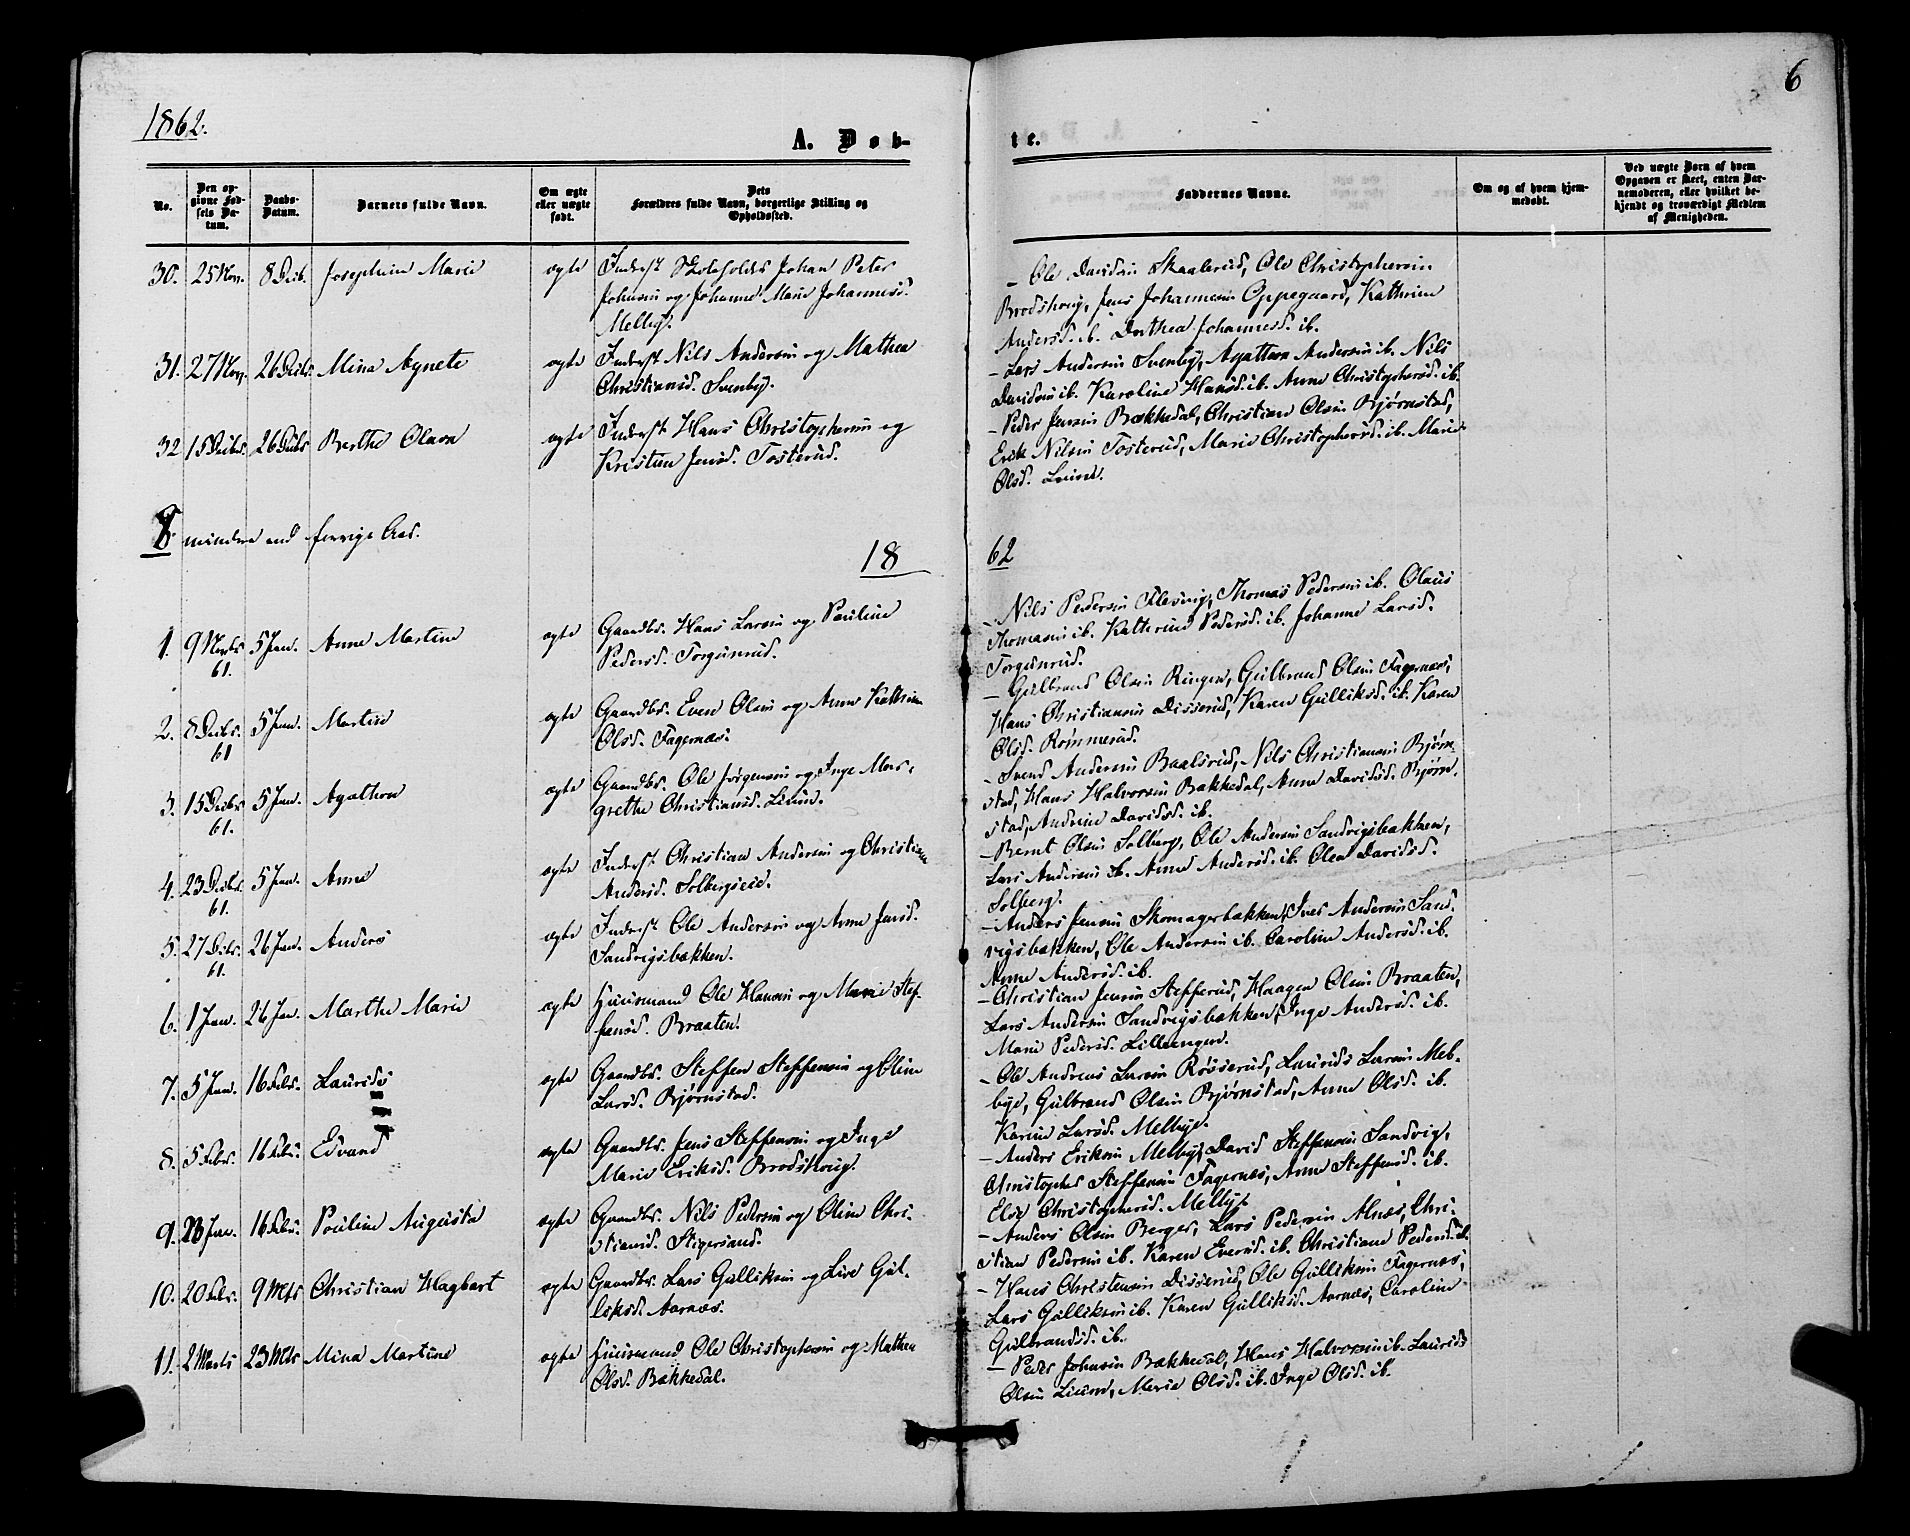 1862.
6
A. Døb-
te.
No.
Den op-
givne Fød-
sels Da-
tum.
Daabs-
Datum.
Barnets fulde Navn.
Om ægte
eller uægte
født.
Dets
Forældres fulde Navn, borgerlige Stilling og
Opholdssted.
Faddernes Navne.
Om og af hvem hjem-
medøbt.
Ved uægte Børn af hvem
Opgaven er skeet, enten Bar-
nemoderen, eller hvilket be-
kjendt og troværdigt Medlem
af Menigheden.
30. 25 Nov. 8 Decb. Josephine Marie ægte Inderst Johan Peter
Johnsen og Johanne Marie Johannesd.
Melby.
- Ole Davidsen Skaalerud, Ole Christophersen
Brodshoug, Jens Johannesen Oppegaard, Kathrine
Andersd. ib. Dorthea Johannesd. ib.
31. 27 Nov. 26 Decb. Mina Agnete ægte Inderst Nils Andersen og Mathea
Christiansd. Svenby.
- Lars Andersen Svenby, Agathon Andersen ib. Nils
Davidsen ib. Karoline Hansd. ib. Anne Christophersd. ib.
32 15 Decbr. 26 Decbr Berthe Olava ægte Inderst Hans Christophersen og
Kristine Jensd. Tosterud.
- Peder Jensen Bækkedal, Christian Olsen Bjørnstad,
Erik Nilsen Tosterud, Marie Christophersd. ib. Marie
Olsd. Liuim.
8 mindre end forrige Aar.
18
62
1. 9 Novbr 61. 5 Jan. Anne Martine ægte Gaardbr. Hans Larsen og Pauline
Pedersd. Torgunrud.
- Nils Pedersen Flesvig, Thomas Pedersen ib. Olaus
Thomasen ib. Kathrine Pedersd. ib. Johanne Larsd.
Torgunrud.
2. 8 Decbr. 61 5 Jan. Martin ægte Gaardbr. Even Olsen og Anne Kathrine
Olsd. Fagernæs.
- Gulbrand Olsen Ringen, Gulbrand Olsen Fagernæs,
Hans Christiansen Disserud, Karen Gulliksd. ib. Karen
Olsd. Rommerud.
3. 15 Decbr 61. 5 Jan. Agathon ægte Gaardbr. Ole Jørgensen og Inge Mar-
grethe Christiansd. Liuim.
- Svend Andersen Baalsrud, Nils Christiansen Bjørn-
stad, Hans Halvorsen Bækkedal, Anne Davidsd. Bjørn-
stad, Andrine Davidsd. ib.
4. 23 Decbr. 61. 5 Jan. Anne ægte Inderst Christian Andersen og Christiane
Andersd. Solbergseie.
- Bernt Olsen Solberg, Ole Andersen Sandvigsbakken,
Lars Andersen ib. Anne Andersd. ib. Olea Davidsd.
Solberg.
5. 27 Decbr. 61. 26 Jan. Anders ægte Inderst Ole Andersen og Anne Jensd.
Sandvigsbakken.
- Anders Jensen Skomagerbakken, Iver Andersen Sand-
vigsbakken, Ole Andersen ib. Caroline Andersd. ib.
Anne Andersd. ib.
6. 1 Jan. 26 Jan. Marthe Marie ægte Huusmand Ole Hansen og Marie Stef-
fensd. Braaten.
- Christian Jensen Stefferud, Haagen Olsen Braaten,
Lars Andersen Sandvigsbakken, Inge Andersd. ib.
Marie Pedersd. Lilleengen.
7. 5 Jan. 16 Febr. Laurids ægte Gaardbr. Steffen Steffensen og Oline
Larsd. Bjørnstad.
- Ole Andreas Larsen Røsserud, Laurids Larsen Mel-
bye, Gulbrand Olsen Bjørnstad, Anne Olsd. ib.
Karine Larsd. Melbye.
8. 5 Febr. 16 Febr. Edvard ægte Gaardbr. Jens Steffensen og Inge
Marie Eriksd. Brodshoug.
- Anders Eriksen Melby, David Steffensen Sandvig,
Christopher Steffensen Fagernæs, Anne Steffensd. ib.
Else Christophersd. Melby.
9. 23 Jan. 16 Febr. Pouline Augusta ægte Gaardbr. Nils Pedersen og Oline Chri-
stiansd. Stigersand.
- Anders Olsen Berger, Lars Pedersen Alnæs, Chri-
stian Pedersen ib. Karen Eversd. ib. Christiane Pedersd. ib.
10. 20 Febr. 9 Mts Christian Hagbart ægte Gaardbr. Lars Gulliksen og Live Gul-
liksd. Aarnæs.
- Hans Christensen Disserud, Ole Gulliksen Fagernæs,
Lars Gulliksen ib. Karen Gulliksd. Aarnæs, Caroline
Gulbrandsd. ib.
11. 2 Marts 23 Mts Mina Martine ægte Huusmand Ole Christophersen og Mathea
Olsd. Bækkedal.
- Peder Johnsen Bækkedal, Hans Halvorsen ib. Laurids
Olsen Liuim, Marie Olsd. ib. Inge Olsd. ib.